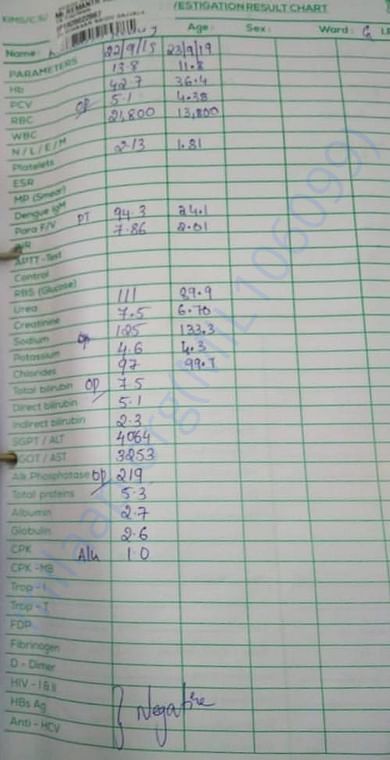 KIMS/C.S/ VESTIGATION RESULT CHART
Name: Age: Sex: Ward: G
PARAMETERS 22/9/15 23/9/19
Hb 13.8 11.8
PCV 42.7 36.4
RBC 5.1 4.38
WBC 21,800 13,800
N / L / E / M
Platelets 2.13 1.81
ESR
MP (Smear)
Dengue IgM
Para F/V PT 94.3 24.1
7.86 2.01
APTT - Test
Control
RBS (Glucose)
Urea 111 89.9
Creatinine 7.5 6.70
Sodium 125 133.3
Potassium 4.6 4.3
Chlorides 97 99.7
Total bilirubin OP 7.5
Direct bilirubin 5.1
Indirect bilirubin 2.3
SGPT / ALT 4064
SGOT / AST 3253
Alk Phosphatase OP 219
Total proteins 5.3
Albumin 2.7
Globulin 2.6
CPK A/G 1.0
CPK - MB
Trop - I
Trop - T
FDP
Fibrinogen
D - Dimer
HIV - I & II
HBs Ag Negative
Anti - HCV
milaap.org(MIL106099)